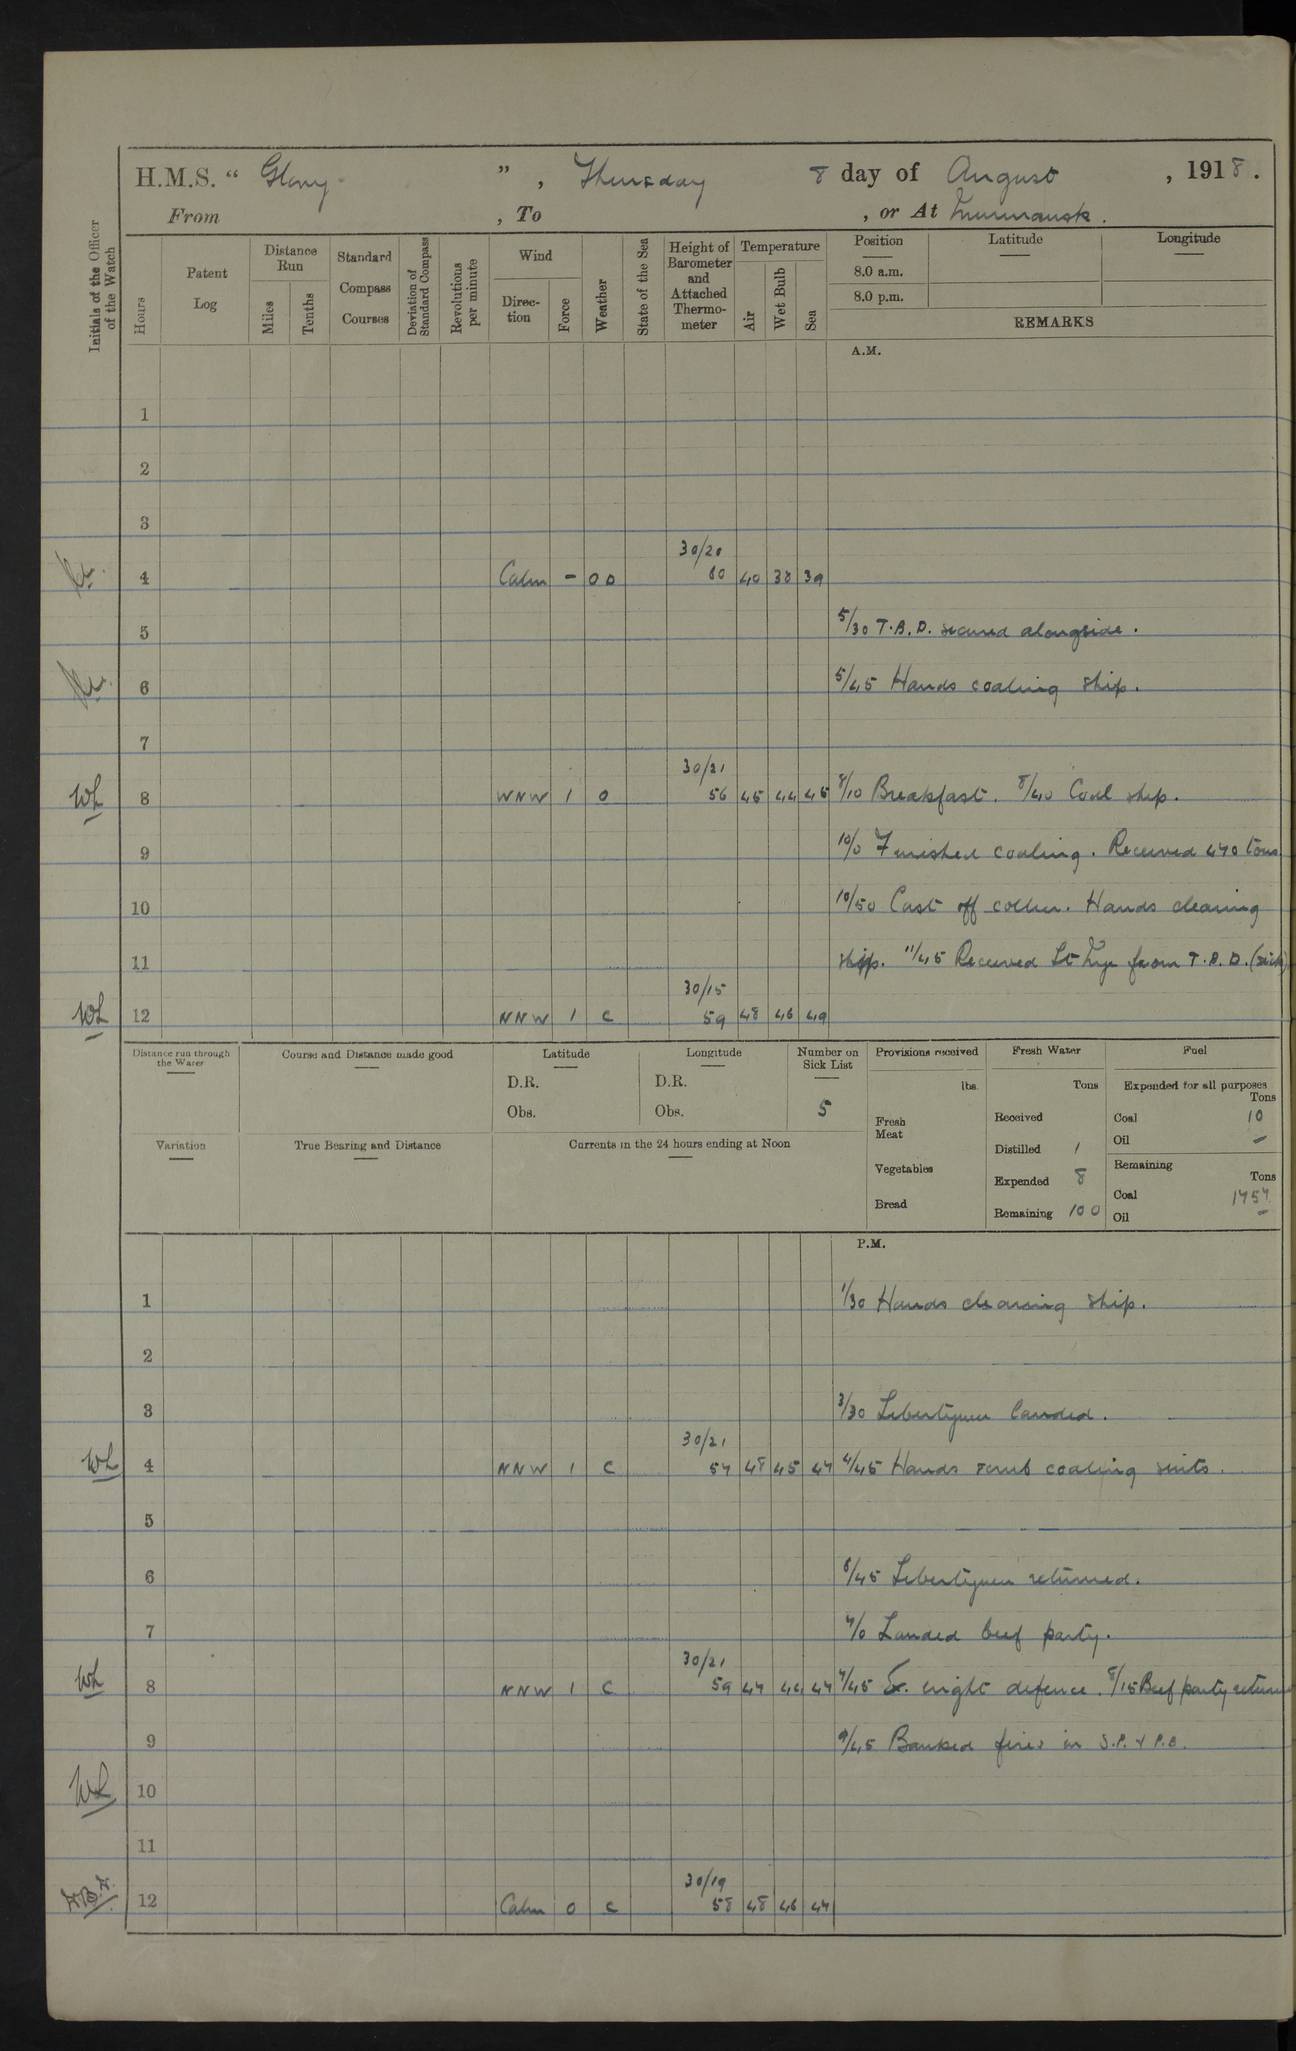 H.M.S. “ Glory ” , Thursday 8 day of August , 1918 .
From , To , or At Murmansk .
Initials of the Officer of the Watch
Hours
Patent Log
Distance Run
Miles
Tenths
Standard Compass Courses
Deviation of Standard Compass
Revolutions per minute
Wind
Direc-tion
Force
Weather
State of the Sea
Height of Barometer and Attached Thermo-meter
Temperature
Air
Wet Bulb
Sea
Position
8.0 a.m.
8.0 p.m.
Latitude
Longitude
REMARKS
A.M.
1
2
3
30/20
4 Calm - 00 60 40 38 39
5 5/30 T.B.D. secured alongside .
6 5/45 Hands coaling ship.
7
30/21
WL 8 WNW 1 0 56 45 44 45 8/10 Breakfast. 8/40 Coal ship.
9 10/0 Finished coaling. Received 470 tons
10 10/50 Cast off collier. Hands cleaning
11 ship. 11/45 Received Lt from T.B.D. (sick)
30/15
WL 12 NNW 1 c 59 48 46 49
Distance run through the Water
Course and Distance made good
Latitude
D.R.
Obs.
Longitude
D.R.
Obs.
Number on Sick List
5
Provisions received
lbs.
Fresh Meat
Vegetables
Bread
Fresh Water
Tons
Received
Distilled 1
Expended 8
Remaining 100
Fuel
Expended for all purposes
Tons
Coal 10
Oil -
Remaining
Tons
Coal 1757
Oil -
Variation
True Bearing and Distance
Currents in the 24 hours ending at Noon
P.M.
1 1/30 Hands cleaning ship.
2
3 3/30 Libertymen landed.
30/21
WL 4 NNW 1 c 57 48 45 47 4/45 Hands scrub coaling suits.
5
6 6/45 Libertymen returned.
7 7/0 Landed beef party.
30/21
WL 8 NNW 1 c 59 47 44 47 7/45 Ex. night defence. 8/15 Beef party returned
9 9/45 Banked fires in S.P. & P.B.
WL 10
11
30/19
12 Calm 0 c 58 48 46 47